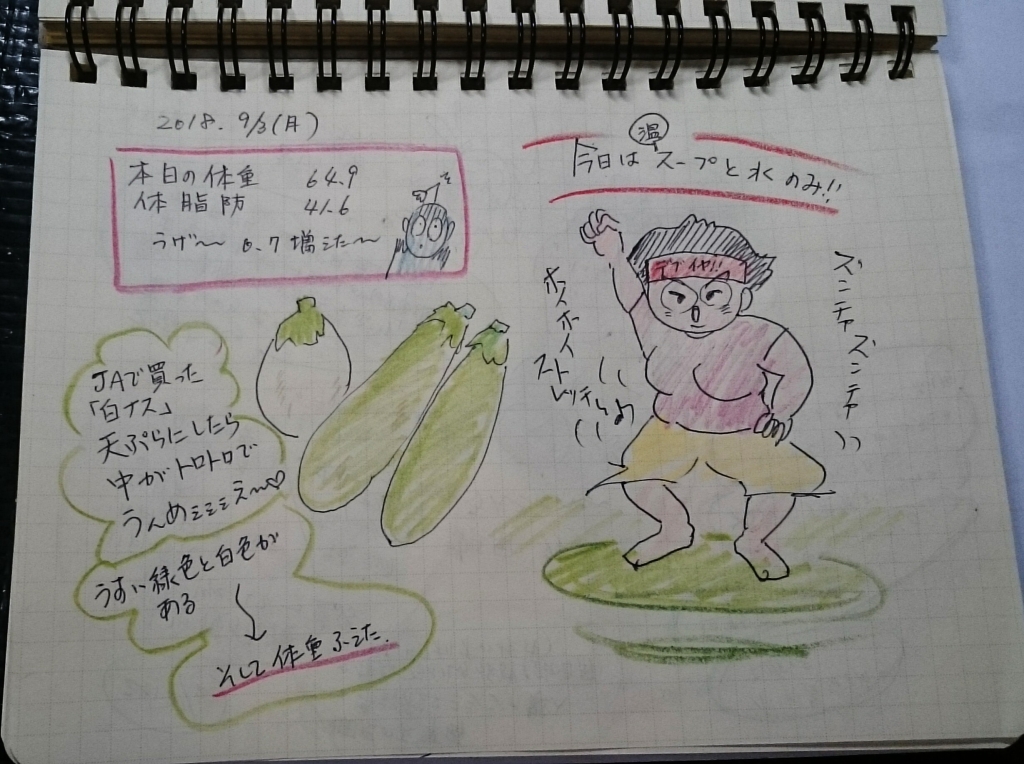 2018. 9/3(月)
本日の体重 64.9
体脂肪 41.6
うげ〜 0.7増えた〜
温
今日はスープと水のみ!!
デブイヤ!!
ホイホイ
ストレッチ
ズンチャズンチャ
JAで買った
「白ナス」
天ぷらにしたら
中がトロトロで
うんめ
え〜♡
うすい緑色と白色が
ある
そして体重ふえた.